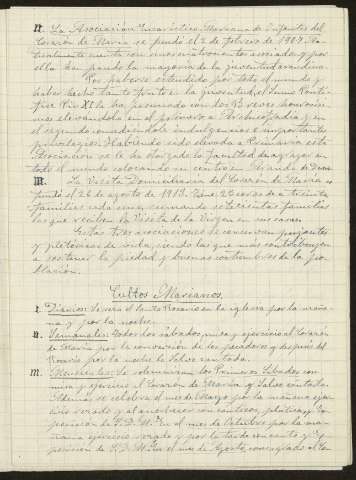 II. La Asociación Eucarístico-Mariana de Infantes del
Corazón de María se fundó el 2 de febrero de 1909.
cuenta con asociados, y por
ella han pasado la mayoría de la juventud
Por haberse extendido por todo el mundo y
haber hecho tanto fruto en la juventud, el Sumo Pontí-
fice Pío XI la ha premiado con los Breves honorosísi-
mos elevándola en el primero a Archicofradía y en
el segundo concediéndole indulgencias e importantes
privilegios. Habiendo sido elevada a Primaria esta
Asociación se le ha otorgado la facultad de agregar en
todo el mundo
III. La Visita Domiciliaria del Corazón de María se
fundó el 2 de agosto de 1913. Tiene coros de a treinta
familias cada uno, sumando familias
las que reciben la Visita de la Virgen en sus casas.
Estas tres asociaciones se conservan pujantes
y pletóricas de vida, siendo las que más contribuyen
a sostener la piedad y buenas costumbres de la po-
blación.
Cultos Marianos.
I. Diarios: Se reza el Santo Rosario en la iglesia por la maña-
na y por la noche.
II. Semanales: Todos los sábados, misa y ejercicio al Corazón
de María por la conversión de los pecadores y después del
Rosario por la noche la Salve cantada.
III. Mensuales: Se solemnizan los Primeros Sábados con
misa y ejercicio al Corazón de María y Salve cantada.
Además se celebra el mes de Mayo por la mañana ejer-
cicio rezado y al anochecer con cánticos, plática, y Ex-
posición de S.D.M. En el mes de Octubre por la ma-
ñana ejercicio rezado y por la tarde con canto y Ex-
posición de S.D.M. En el mes de Agosto, consagrado al Co-